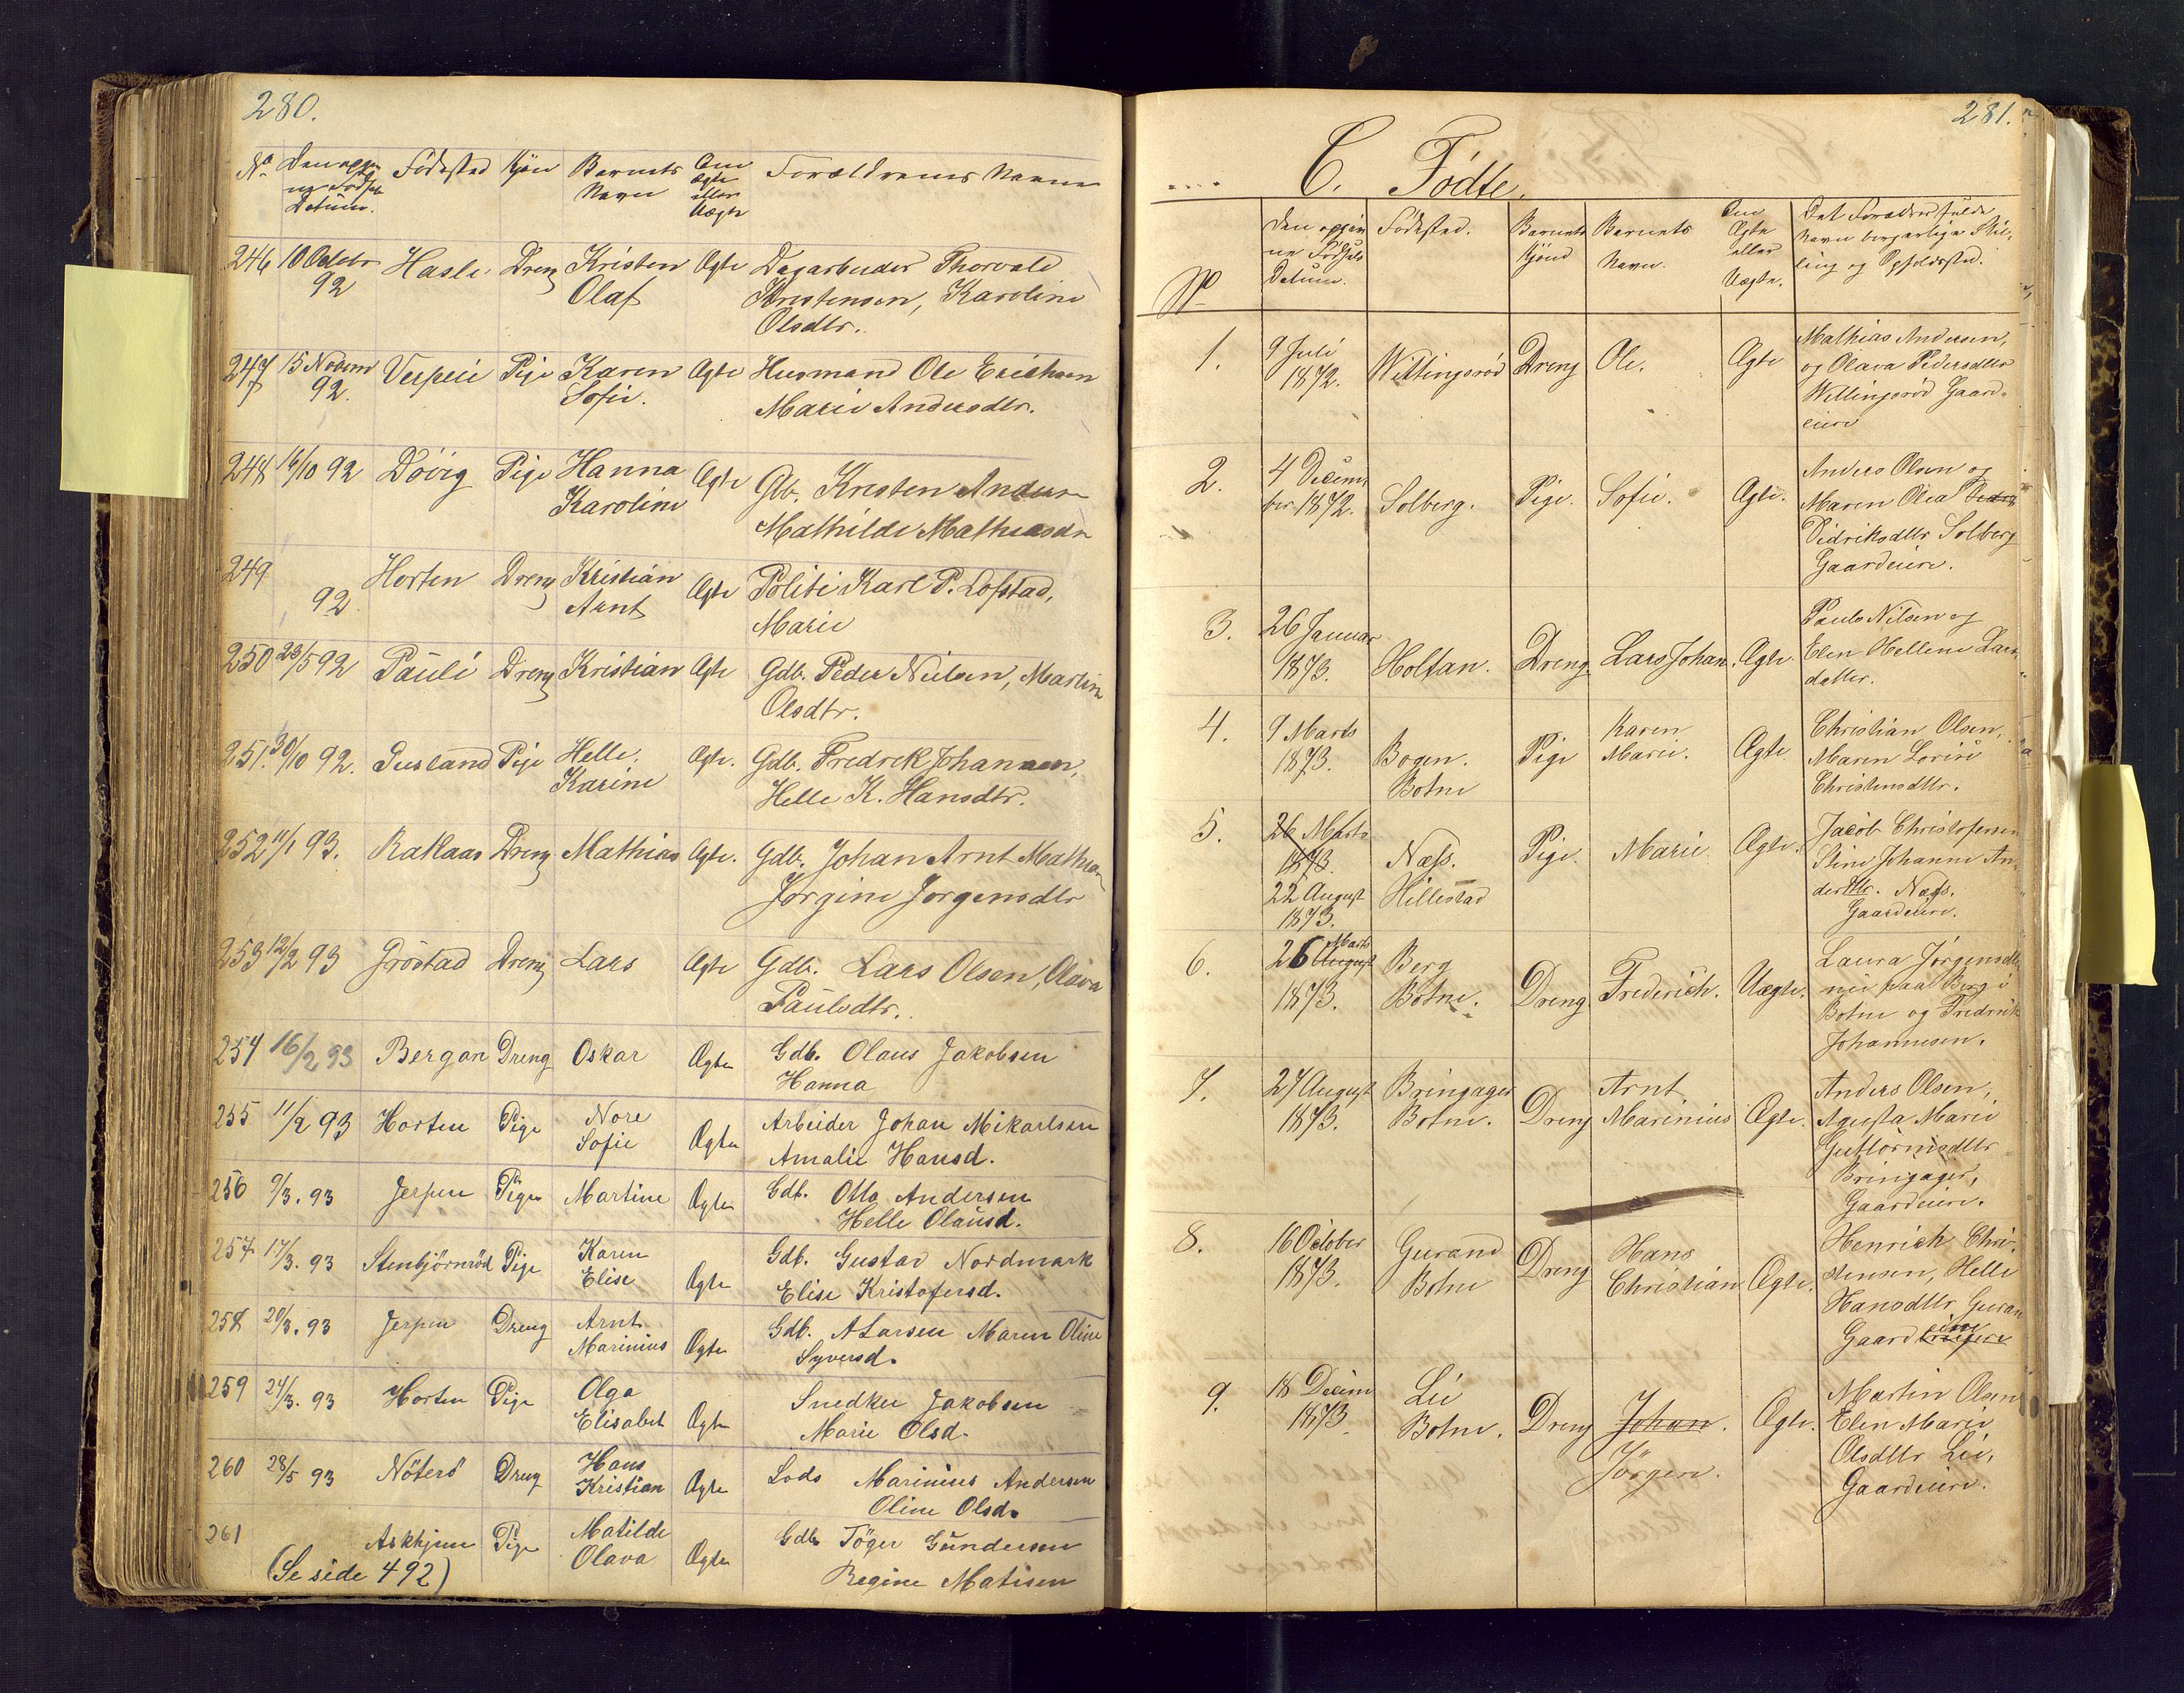 280.
No Den opgivne Fødsels Datum. Fødested Kjøn Barnets Navn Om Ægte eller Uægte Forældrenes Navne
246 10 Octobr 92 Hasle Dreng Kristen Olaf Ægte Dagarbeider Thorvald
Kristensen, Karoline
Olsdtr.
247 15 Novem 92. Verpeie Pige Karen Sofie. Ægte Husmand Ole Erichsen
Marie Andersdtr.
248 16/10 92 Døvig Pige Hanna Karoline Ægte Gb. Kresten Andersen
Mathilde Mathiasdn
249 92. Horten Dreng Kristian Arnt Ægte Politi Karl P. Lofstad,
Marie
250 23/5 92 Pauli Dreng Kristian Ægte Gdb. Peder Nielsen, Martine
Olsdtr.
251. 30/10 92. Pige Helle Karine Ægte. Gdb. Fredrek Johannsen,
Helle K. Hansdtr.
252 11/1 93. Raklaas Dreng Mathias Ægte. Gdb. Johan Arnt Mathisen
Jørgine Jørgensdtr
253 12/2 93 Grøstad Dreng Lars Ægte Gdb. Lars Olsen, Olava
Paulsdtr.
254 16/2 93 Bergan Dreng Oskar Ægte Gdb. Olaus Jakobsen
Hanna
255 11/2 93 Horten Pige Nore Sofie Ægte Arbeider Johan Mikarlsen
Amalie Hansd.
256 9/3. 93 Jerpen Pige Martine Ægte Gdb. Otto Andersen
Helle Olausd.
257 17/3. 93 Stenbjørnrød Pige Karen Elise Ægte Gdb. Gustav Nordmark
Elise Kristofersd.
258 20/3. 93 Jerpen Dreng Arnt Marinius Ægte Gdb. A Larsen Maren Oline
Syversd.
259 24/3. 93 Horten Pige Olga Elisabet Ægte Snedker Jakobsen
Marie Olsd.
260 28/5 93 Nøterø Dreng Hans Kristian Ægte Lods Marinius Andersen
Oline Olsd.
261 Askhjem Pige Matilde Olava Ægte Gdb. Tøger Gundersen
(Se side 492) Regine Matisen
281.
C. Fødte.
No Den opgivne Fødsels Datum. Fødested. Barnets Kjønd Barnets Navn. Om Ægte eller Uægte. Det Forældres fulde
Navn borgerlige Stilling og Opholdssted.
1. 9 Juli 1872. Wittingsrød Dreng Ole. Ægte Mathias Andersen,
og Olava Pedersdtter
Wittingsrød Gaard-
eiere
2. 4 December 1872. Solberg. Pige. Sofie. Ægte. Anders Olsen og
Maren Olea Peders
Didriksdttr Solberg
Gaardeiere.
3. 26 Januar 1873. Holtan. Dreng. Lars Johan. Ægte. Pauls Nilsen og
Elen Hellene Lars-
datter.
4. 9 Marts 1873. Bogen. Botne Pige Karen Marie. Ægte Christian Olsen,
Maren Lovise
Christensdttr.
5. 26 Marts 1873. 22 August 1873. Næss. Hillestad Pige. Marie Ægte. Jacob Christofersen
Stine Johanne An-
dersdttr. Næss.
Gaardeiere.
6. 26 August Marts 1873. Berg Botne. Dreng Frederich. Uægte. Laura Jørgensdtr
nu paa Berg i
Botne og Fredrik
Johannesen.
7. 27 August 1873. Bringager Botne. Dreng Arnt Marinius Ægte. Anders Olsen,
Agusta Marie
Guttormsdttr
Bringager,
Gaardeiere.
8. 16 October 1873. Gurand Botne Dreng Hans Christian Ægte. Henrich Chri-
stensen, Helle
Hansdttr Guran
Gaard eiere
9. 18 Decem 1873. Lie Botne. Dreng Johan. Jørgen. Ægte. Martin Olsen
Elen Marie
Olsdttr Lie,
Gaardeiere.